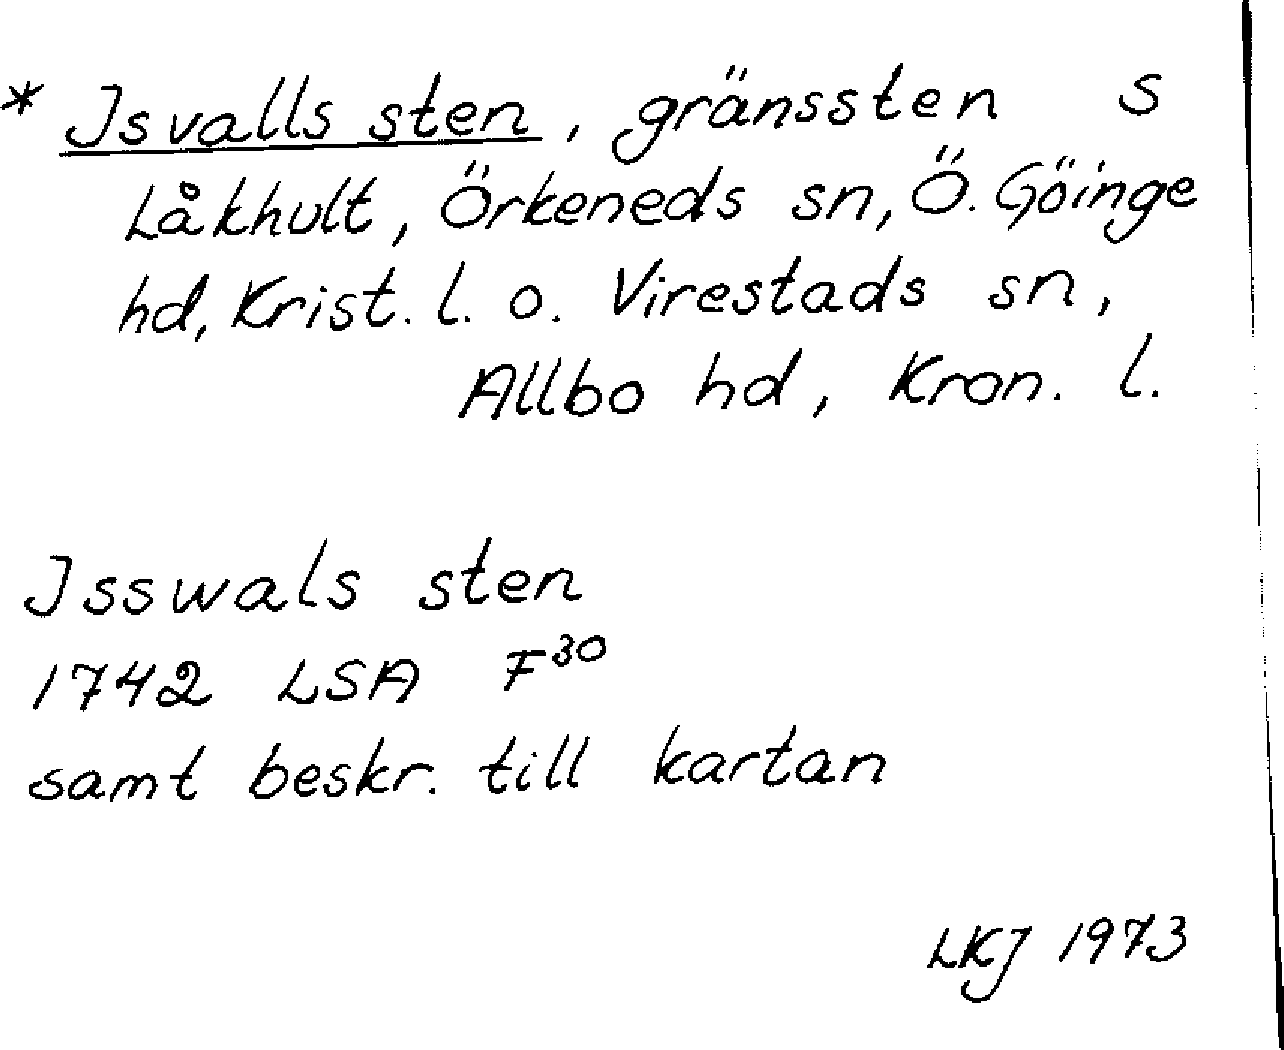 * Isvalls sten, gränssten S
Låkhult, Örkeneds sn, Ö. Göinge
hd, Krist. l. o. Virestads sn,
Allbo hd, Kron. l.
Isswals sten
1742 LSA F³⁰
samt beskr. till kartan
LKJ 1973